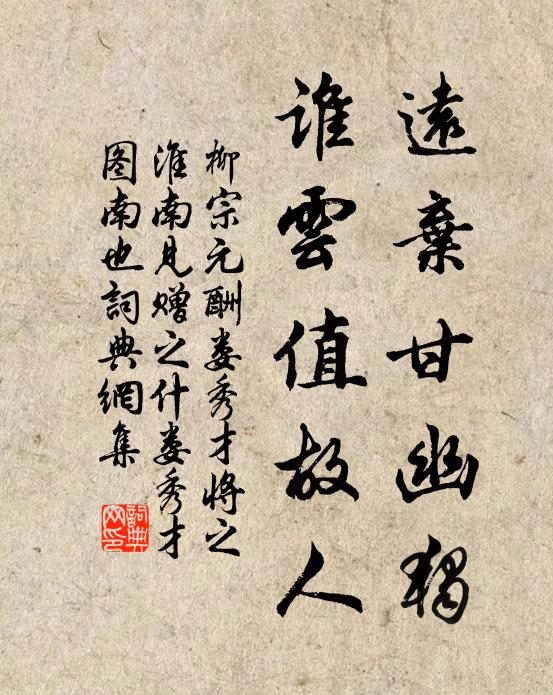 遠棄甘幽獨
誰雲值故人
柳宗元酬娄秀才將之
淮南見赠之什娄秀才
图南也詞典網集
詞典
网印